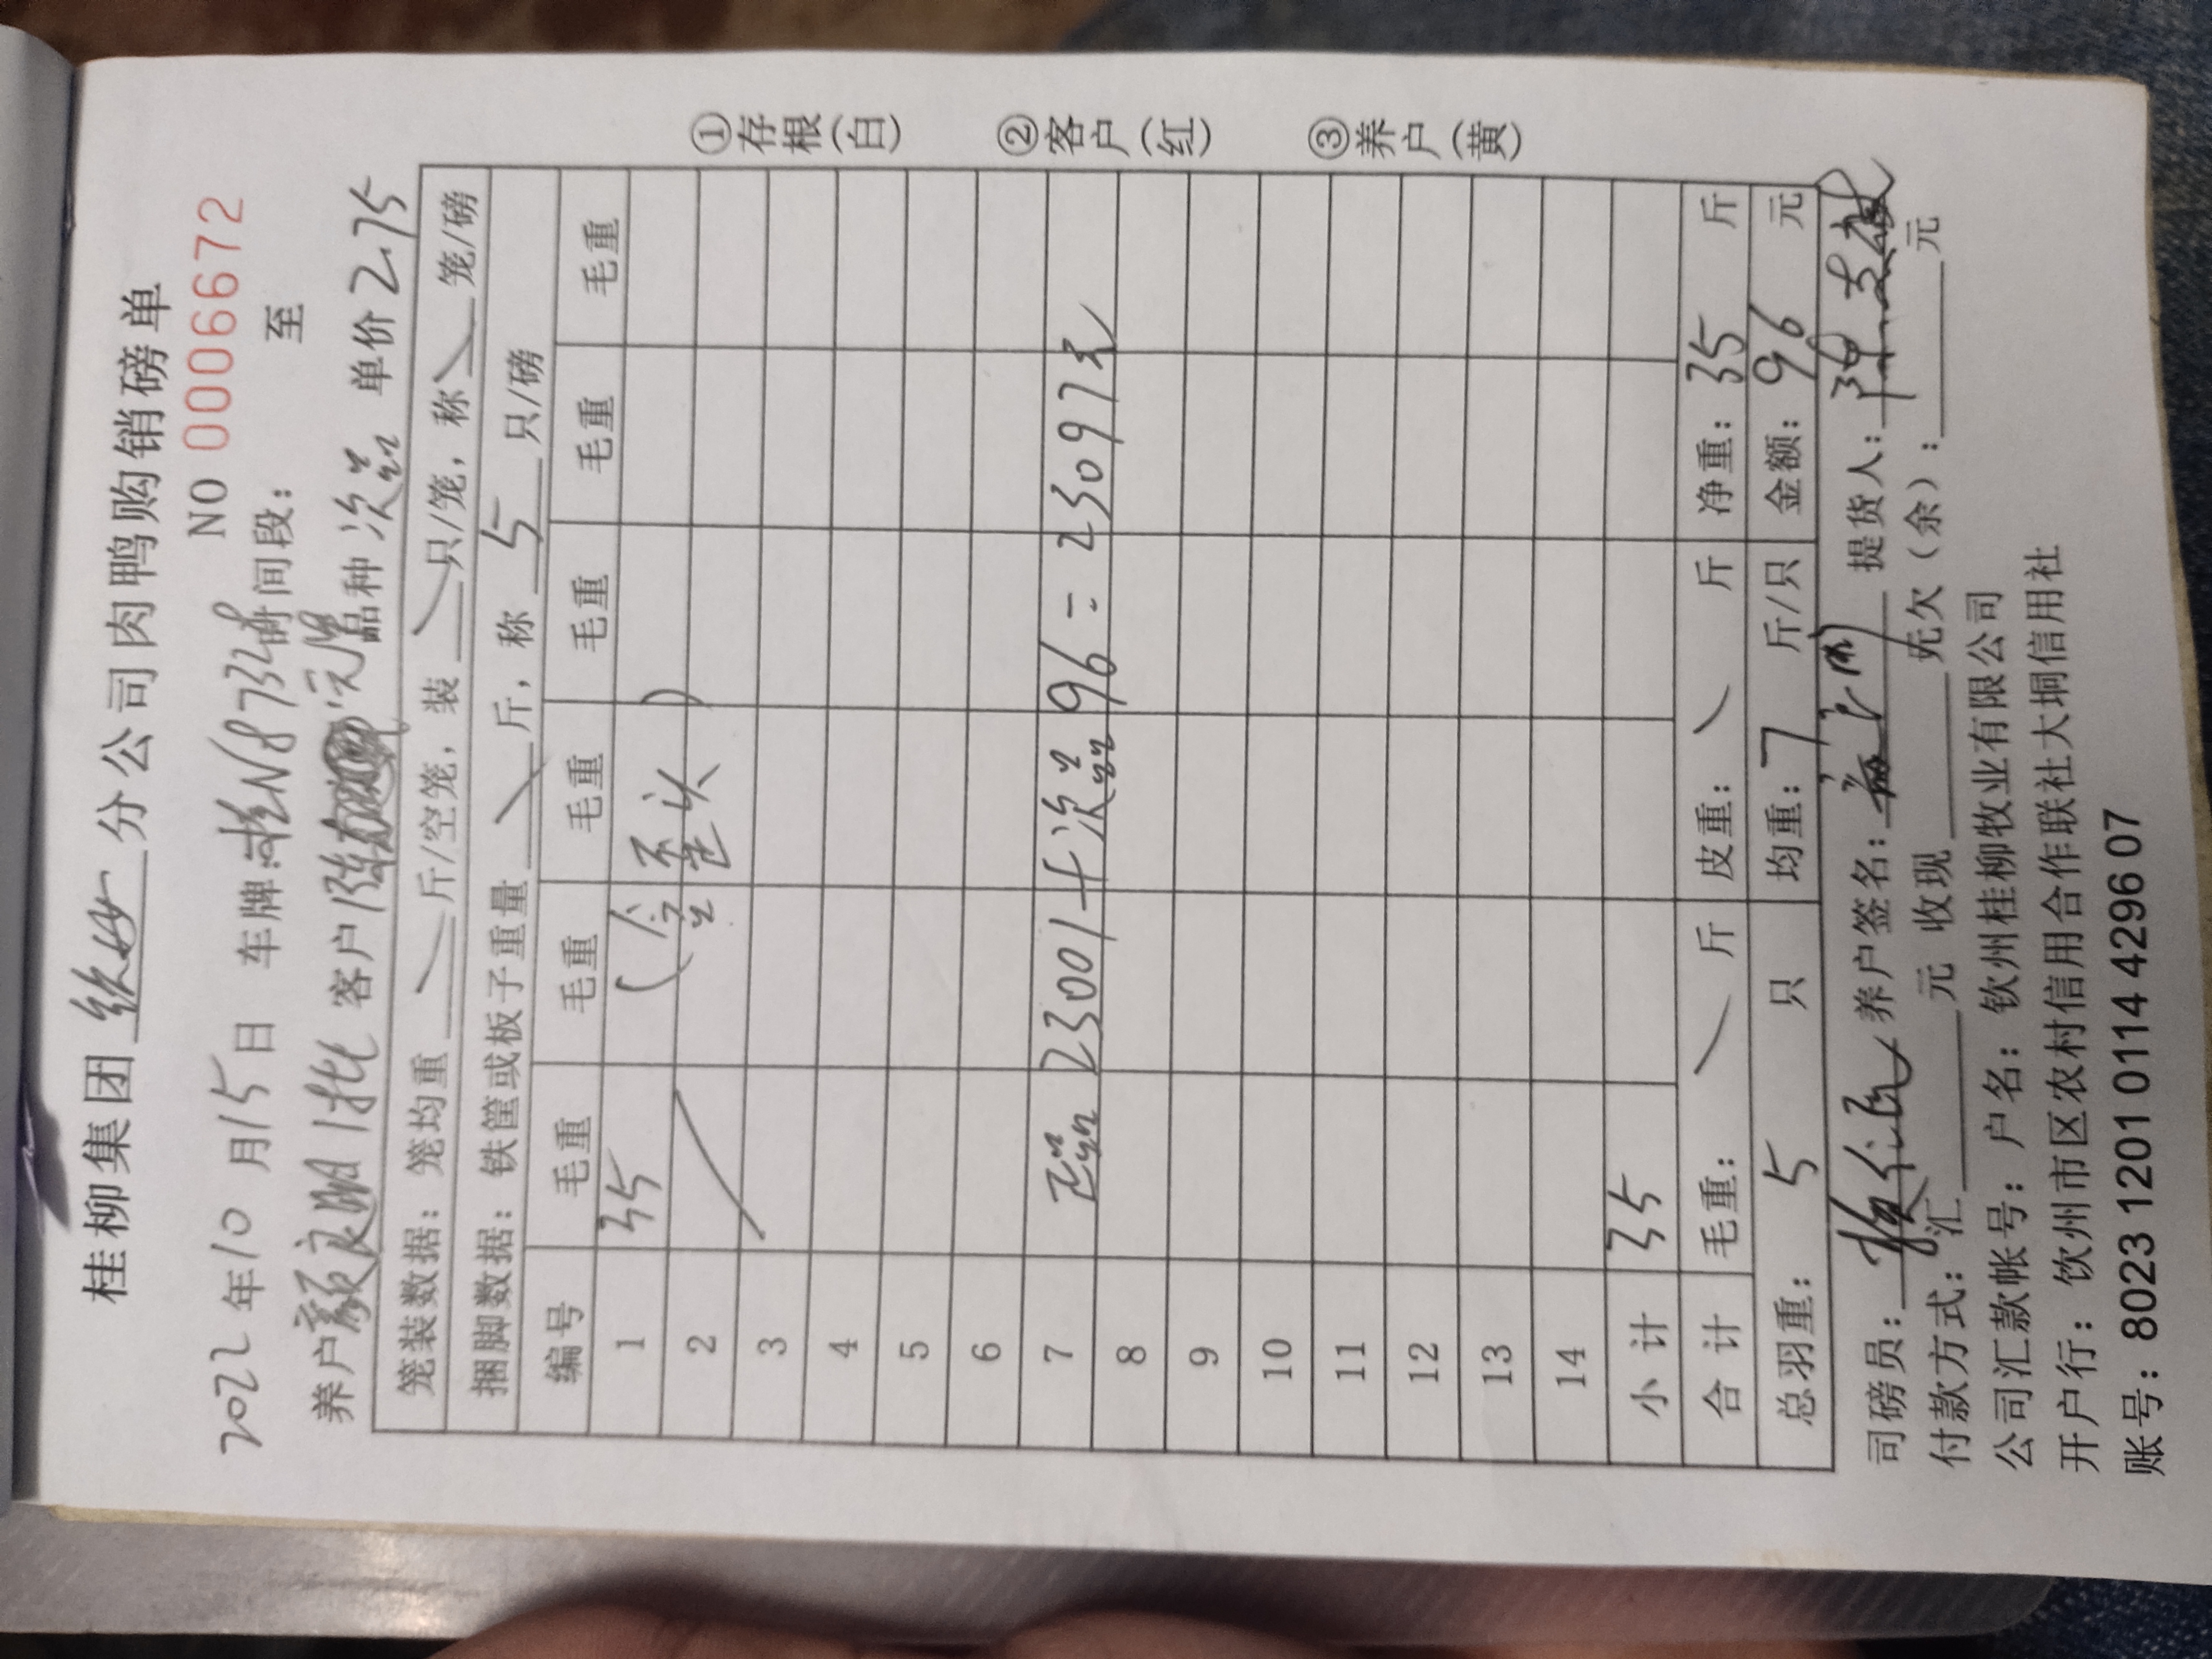 桂柳集团 钦州 分公司肉鸭购销磅单
NO 0006672
2022年10月15日 车牌:桂N8732 时间段: 至
养户颜良朋1批 客户陈 品种 次品 单价 2.75
笼装数据: 笼均重 斤/空笼, 装 只/笼, 称 笼/磅
捆脚数据: 铁筐或板子重量 斤, 称 5 只/磅
编号 毛重 毛重 毛重 毛重 毛重 毛重
1 35 (含歪头)
2
3
4
5
6
7 正品 23001+次品 96 = 23097元
8
9
10
11
12
13
14
小计 35
合计 毛重: 斤 皮重: 斤 净重: 35 斤
总羽重: 5 只 均重: 7 斤/只 金额: 96 元
司磅员: 养户签名: 提货人:
付款方式: 汇 元 收现 元欠(余): 元
公司汇款帐号: 户名: 钦州桂柳牧业有限公司
开户行: 钦州市区农村信用合作联社大垌信用社
账号: 8023 1201 0114 4296 07
①存根(白)
②客户(红)
③养户(黄)